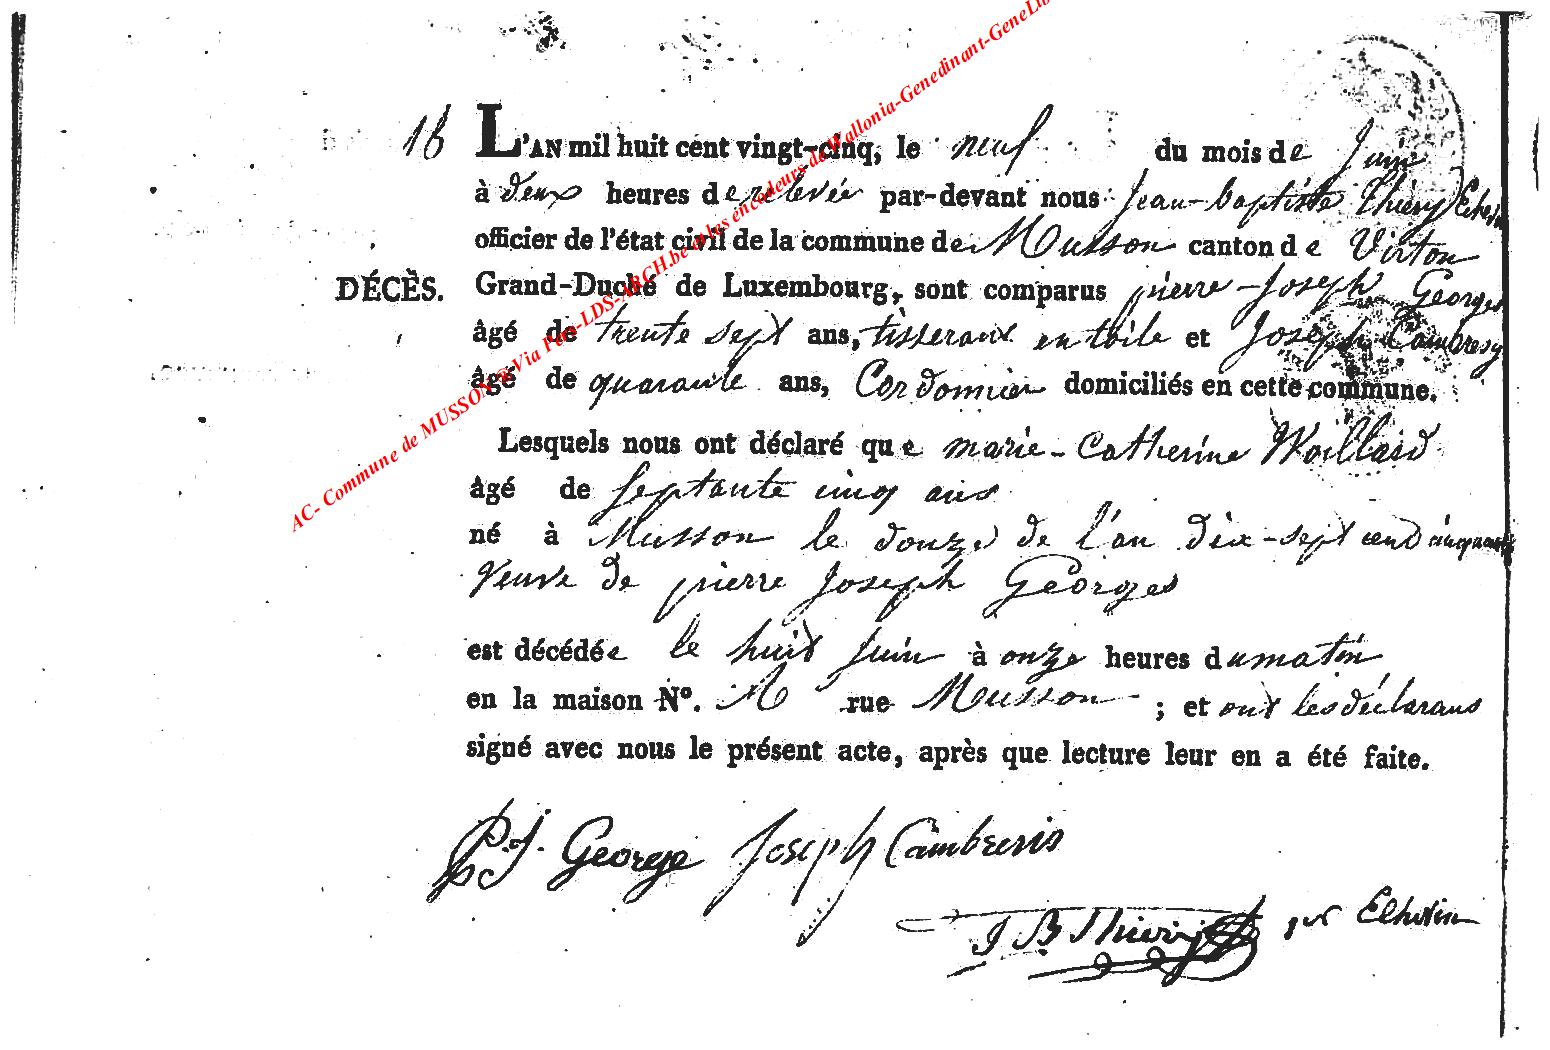 16 L'AN mil huit cent vingt-cinq, le neuf du mois de Juin
à deux heures de relevée par-devant nous Jean-baptiste Thiery Echevin
officier de l'état civil de la commune de Musson canton de Virton
DÉCÈS. Grand-Duché de Luxembourg, sont comparus pierre-Joseph Georges
âgé de trente sept ans, tisserant en toile et Joseph Cambresy
âgé de quarante ans, Cordonnier domiciliés en cette commune.
Lesquels nous ont déclaré que marie-Catherine Woillard
âgé de septante cinq ans
né à Musson le douze de l'an dix-sept cent cinquante
veuve de pierre Joseph Georges
est décédée le huit Juin à onze heures du matin
en la maison N°. rue Musson ; et ont les déclarans
signé avec nous le présent acte, après que lecture leur en a été faite.
P.J. George Joseph Cambresis
J B Thiery Echevin
AC- Commune de MUSSON @Via Pan-LDS-ARCH.be et les encodeurs de Wallonia-Genedinant-GeneLib